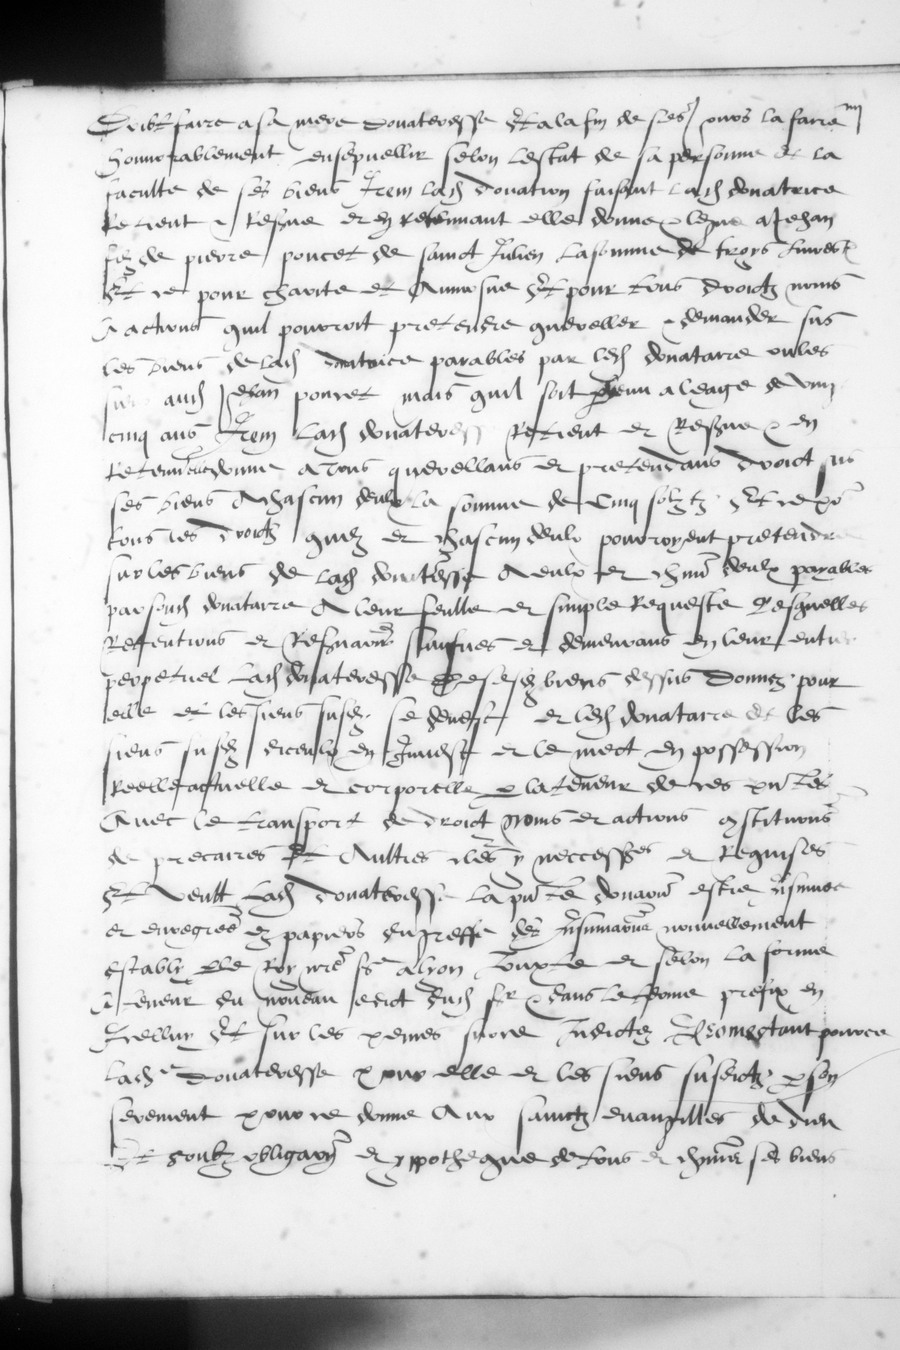 Doibt faire a sa mere donateresse Et a la fin de ses jours la faire
honnorablement ensepvellir selon lestat de sa personne et la
faculte de ses biens Item lad donation faisant lad donatrice
Retient & Reserve et en retennant elle donne & legue a Jehan
filz de pierre poncet de sainct Julien la somme de troys livres tz
Et ce pour charite et Aulmosne Et pour tous droictz noms
& actions quil pourroit pretendre quereller & demander sus
les biens de lad donatrice payables par led donataire ou les
siens aud Jehan poncet mais quil soit parvenu a leage de vingt
cinq ans Item lad donateresse Retient et Reserve & en
Retennant donne a tous querellans et pretendans droict sus
ses biens A chascun deulx la somme de Cinq solz tz Et ce po
tous les droictz quilz et chascun deulx pourroyent pretendre
sur les biens de lad donateresse A eulx et chun deulx payables
par soud donataire A leur seulle et simple Requeste Lesquelles
Retentions et Reservations saulfves et demeurans en leur entier
perpetuel Lad donateresse de sesd biens dessus donnez pour
elle et les siens susd se devest et led donataire et les
siens susd diceulx en Investit et le mect en possession
Reelle actuelle et corporelle p la teneur de ces pntes
Avec le transport de droict noms et actions constitutions
de precaires Et Aultres clauses y neccesses et Requises
Et veult Lad donateresse la pnte donaon estre insinuee
et enregree es papiers du greffe des insinuations nouvellement
estably p le Roy nre sr a lyon Jouxte et selon la forme
& teneur du nouveau edict dud sr & dans le terme prefix en
Icelluy Et sur les peines sur ce Indictes Promectant pour ce
Lad donateresse pour elle et les siens susdictz p son
serement pour ce donne Aux sainctz evangilles de dieu
Et soubz obligaon et ypotheque de tous et chuns ses biens